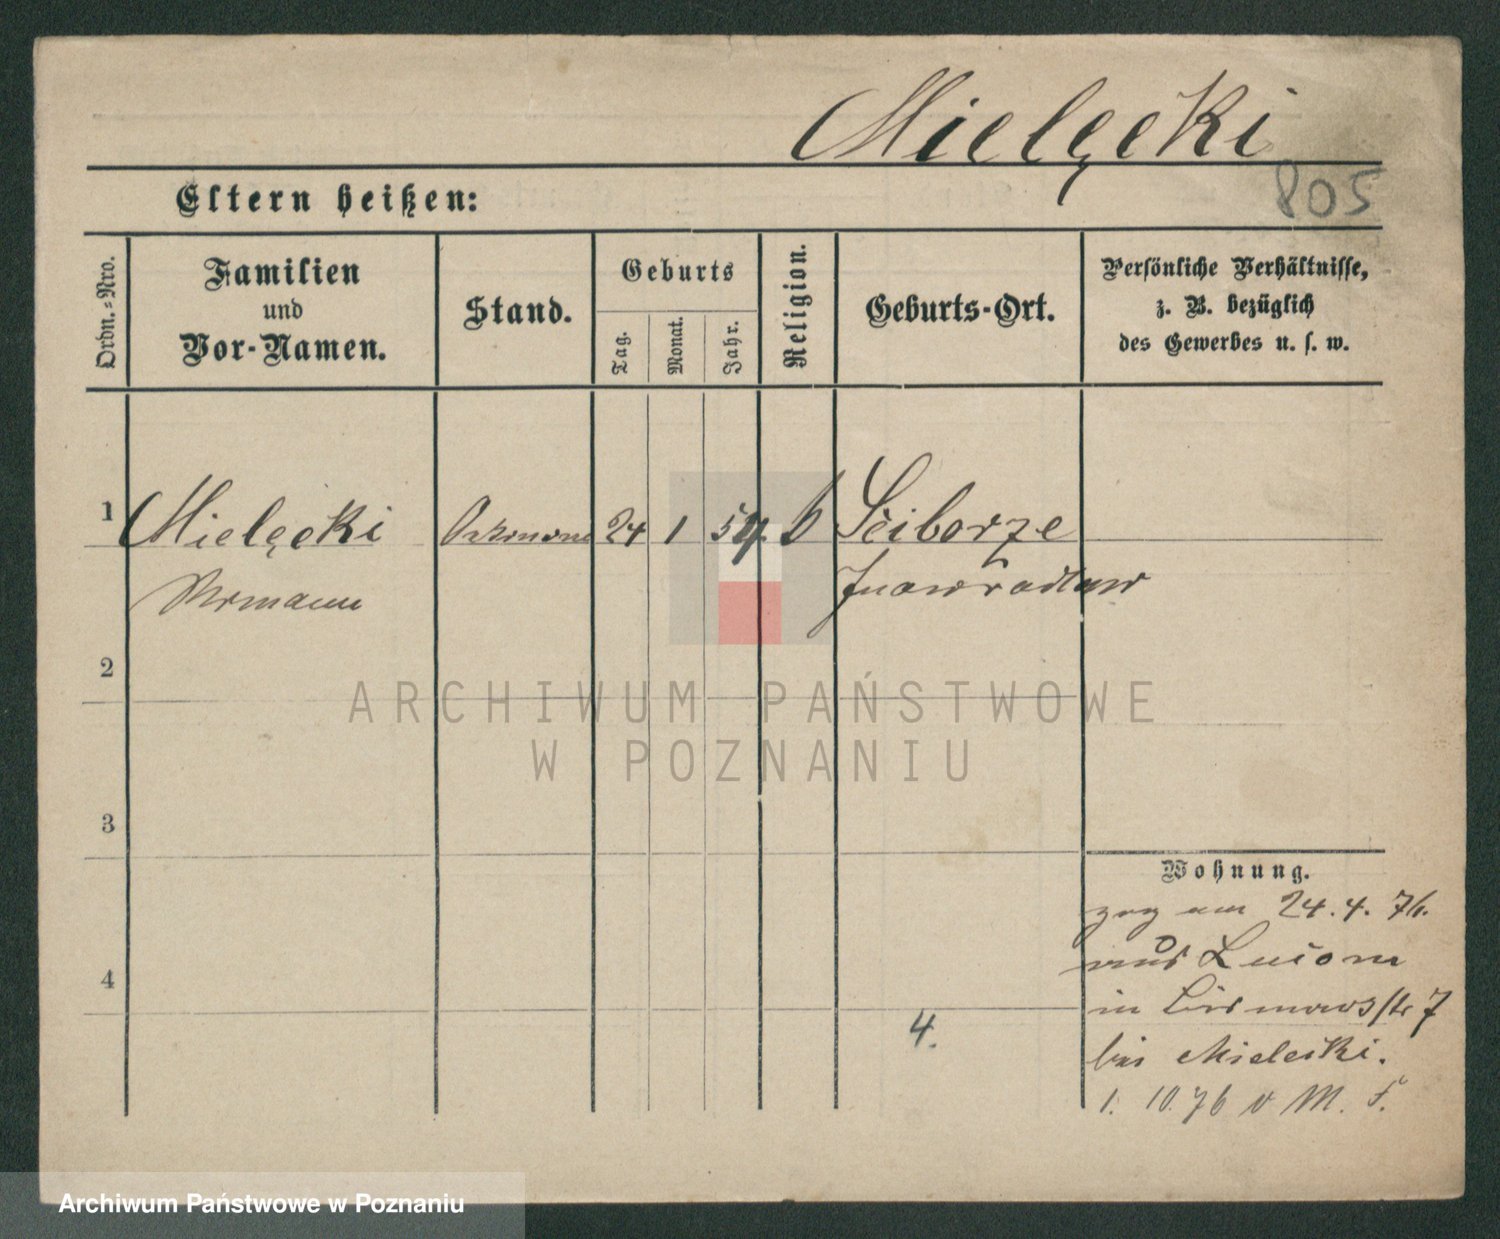 Mielęcki
805
Eltern heißen:
Ordn.-Nro.
Familien
und
Vor-Namen.
Stand.
Geburts
Tag.
Monat.
Jahr.
Religion.
Geburts-Ort.
Persönliche Verhältnisse,
z. B. bezüglich
des Gewerbes u. s. w.
1 Mielęcki 24 1 54. Sciborze
Inowraclaw
2
ARCHIWUM PAŃSTWOWE
W POZNANIU
3
Wohnung.
zog am 24. 4. 76.
aus
4
in 7
4.
bei Mielecki.
1. 10. 76 v M. F.
Archiwum Państwowe w Poznaniu